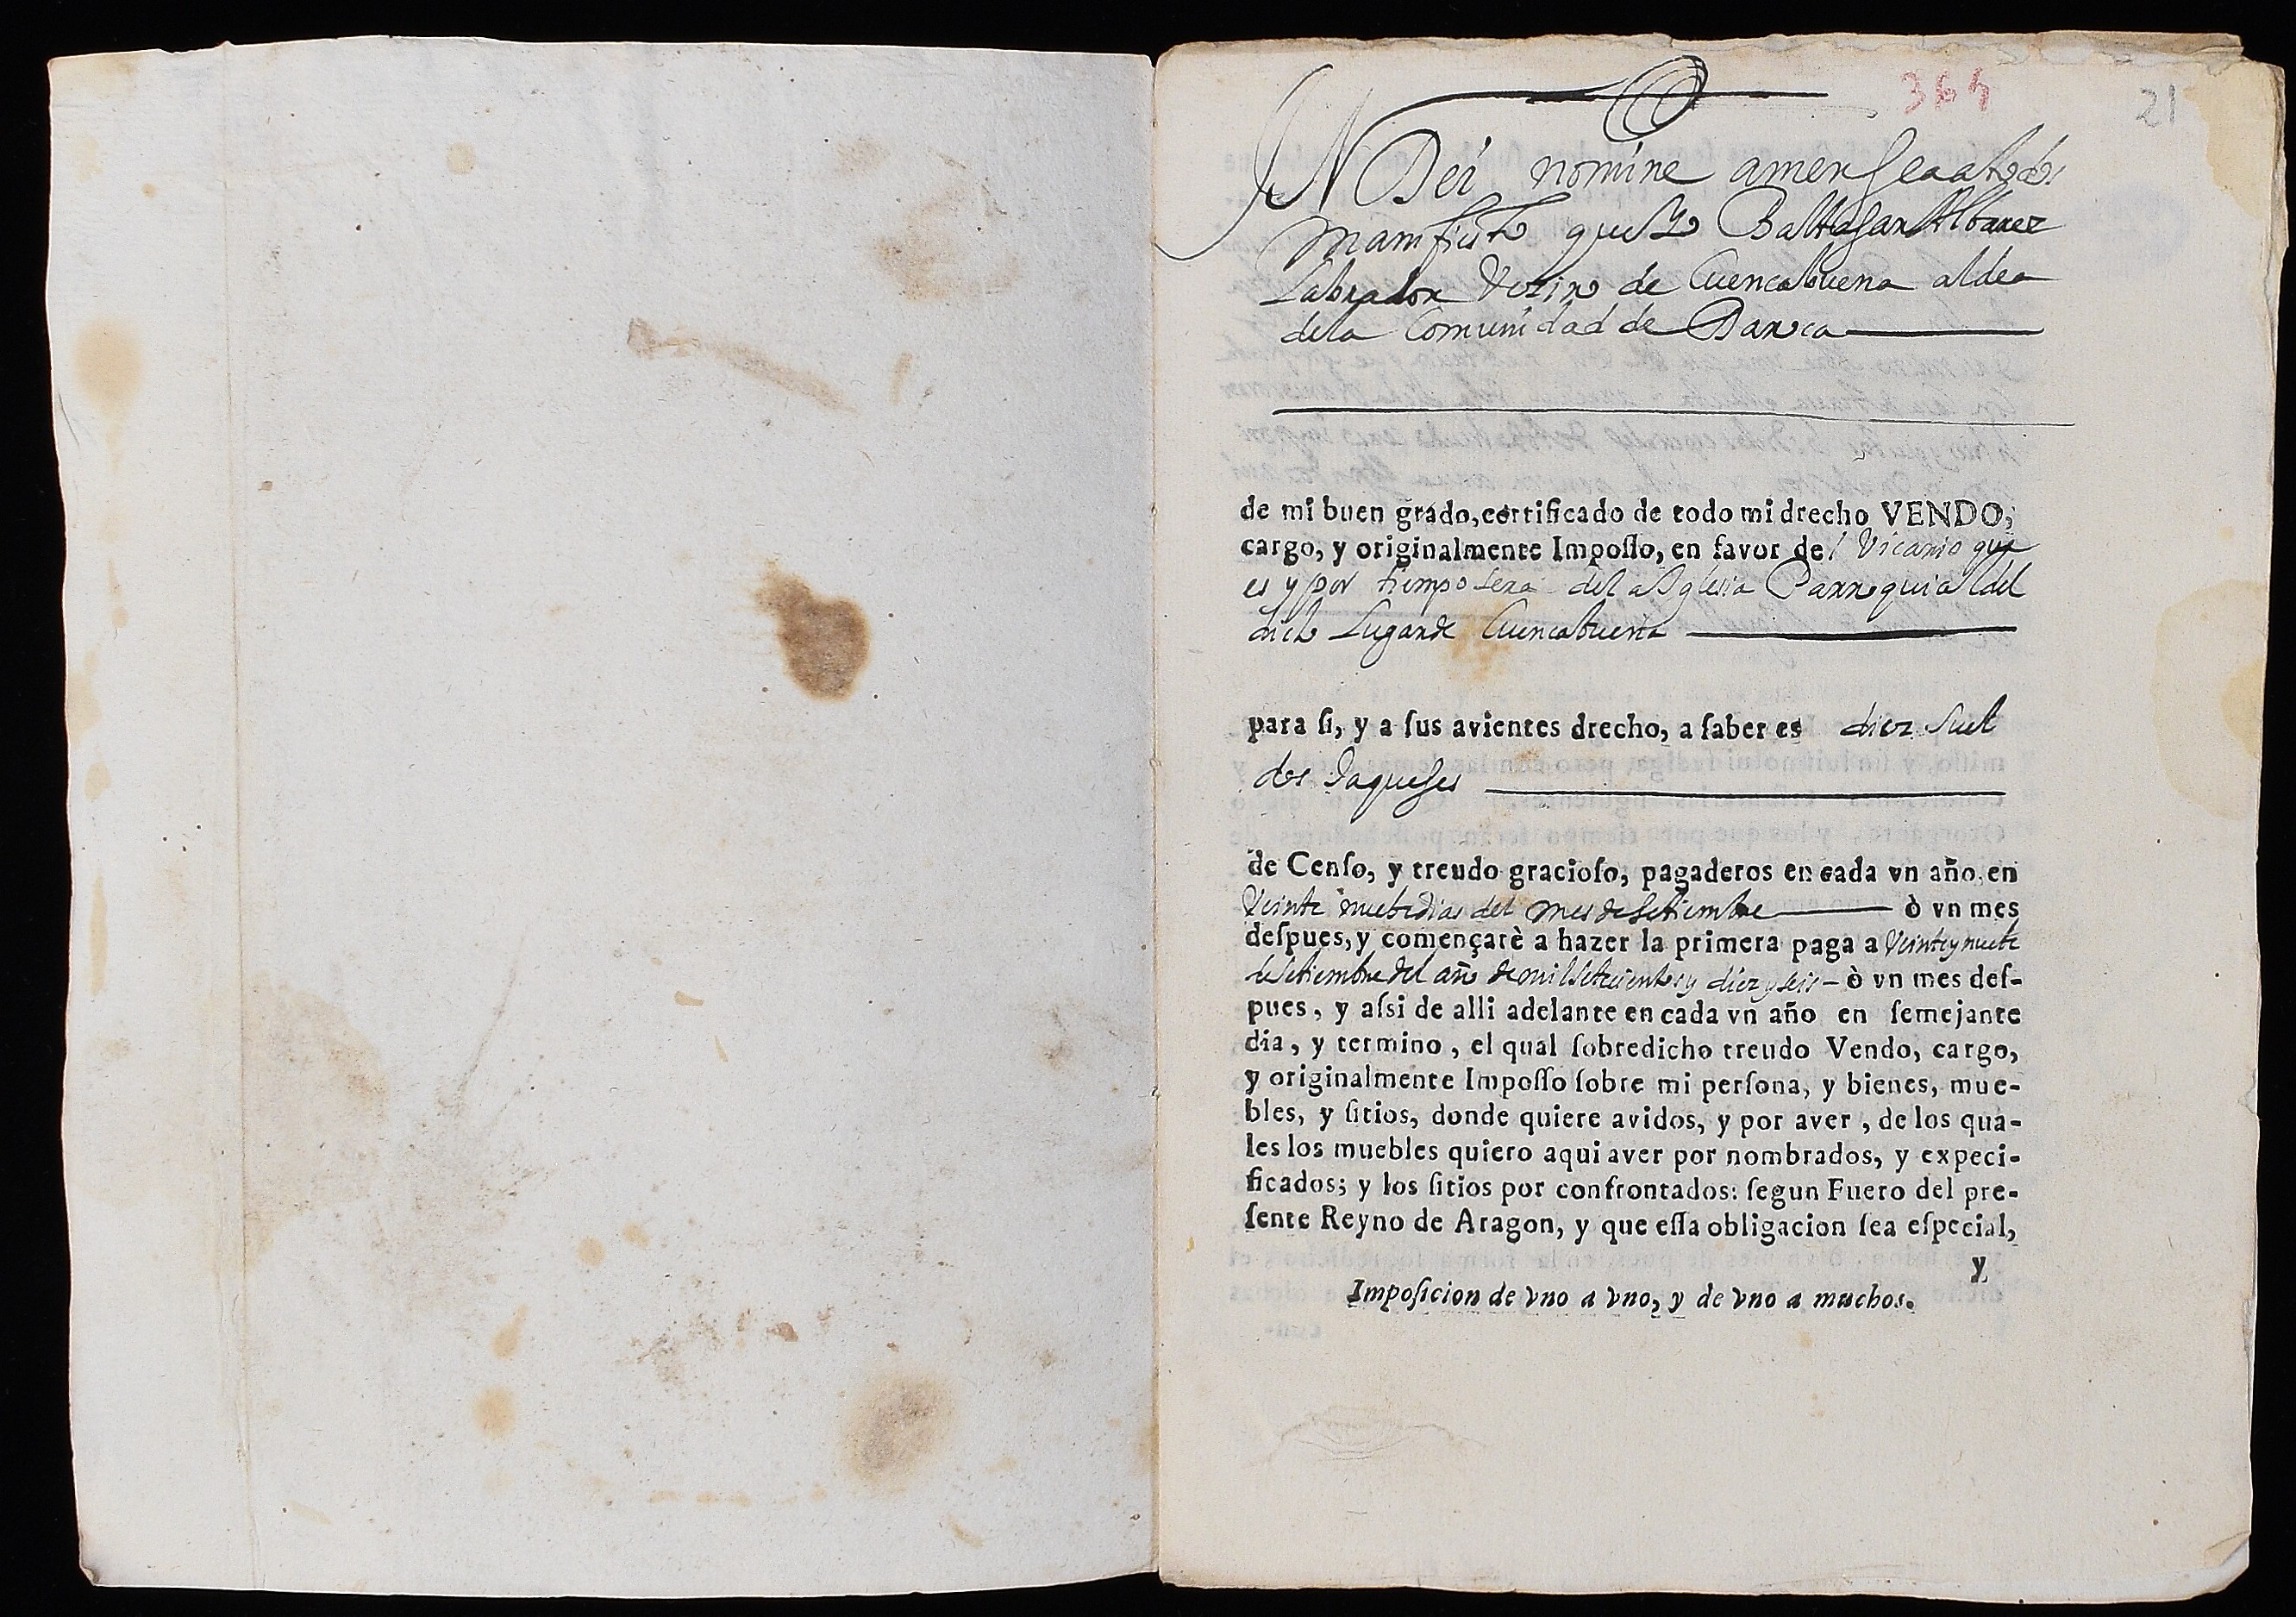 364 21
IN Dei nomine amen sea a todos
manifiesto que Yo Baltasar Albarez
Labrador Vecino de Cuencabuena aldea
de la Comunidad de Daroca
de mi buen grado, certificado de todo mi drecho VENDO,
cargo, y originalmente Impoſſo, en favor del Vicario que
es y por tiempo sera del a Yglesia Parroquial del
dicho Lugar de Cuencabuena
para ſi, y a ſus avientes drecho, a ſaber es diez suel
dos Jaqueses
de Cenſo, y treudo gracioſo, pagaderos en cada vn año, en
Veinte nuebe dias del mes de Setiembre ò vn mes
deſpues, y començarè a hazer la primera paga a Veinte y nuebe
de Setiembre del año de mil Setecientos y diez y seis ò vn mes deſ-
pues, y aſsi de alli adelante en cada vn año en ſemejante
dia, y termino, el qual ſobredicho treudo Vendo, cargo,
y originalmente Impoſſo ſobre mi perſona, y bienes, mue-
bles, y ſitios, donde quiere avidos, y por aver, de los qua-
les los muebles quiero aqui aver por nombrados, y expeci-
ficados; y los ſitios por confrontados: ſegun Fuero del pre-
ſente Reyno de Aragon, y que eſſa obligacion ſea eſpecial,
y
Impoſicion de vno a vno, y de vno a muchos.